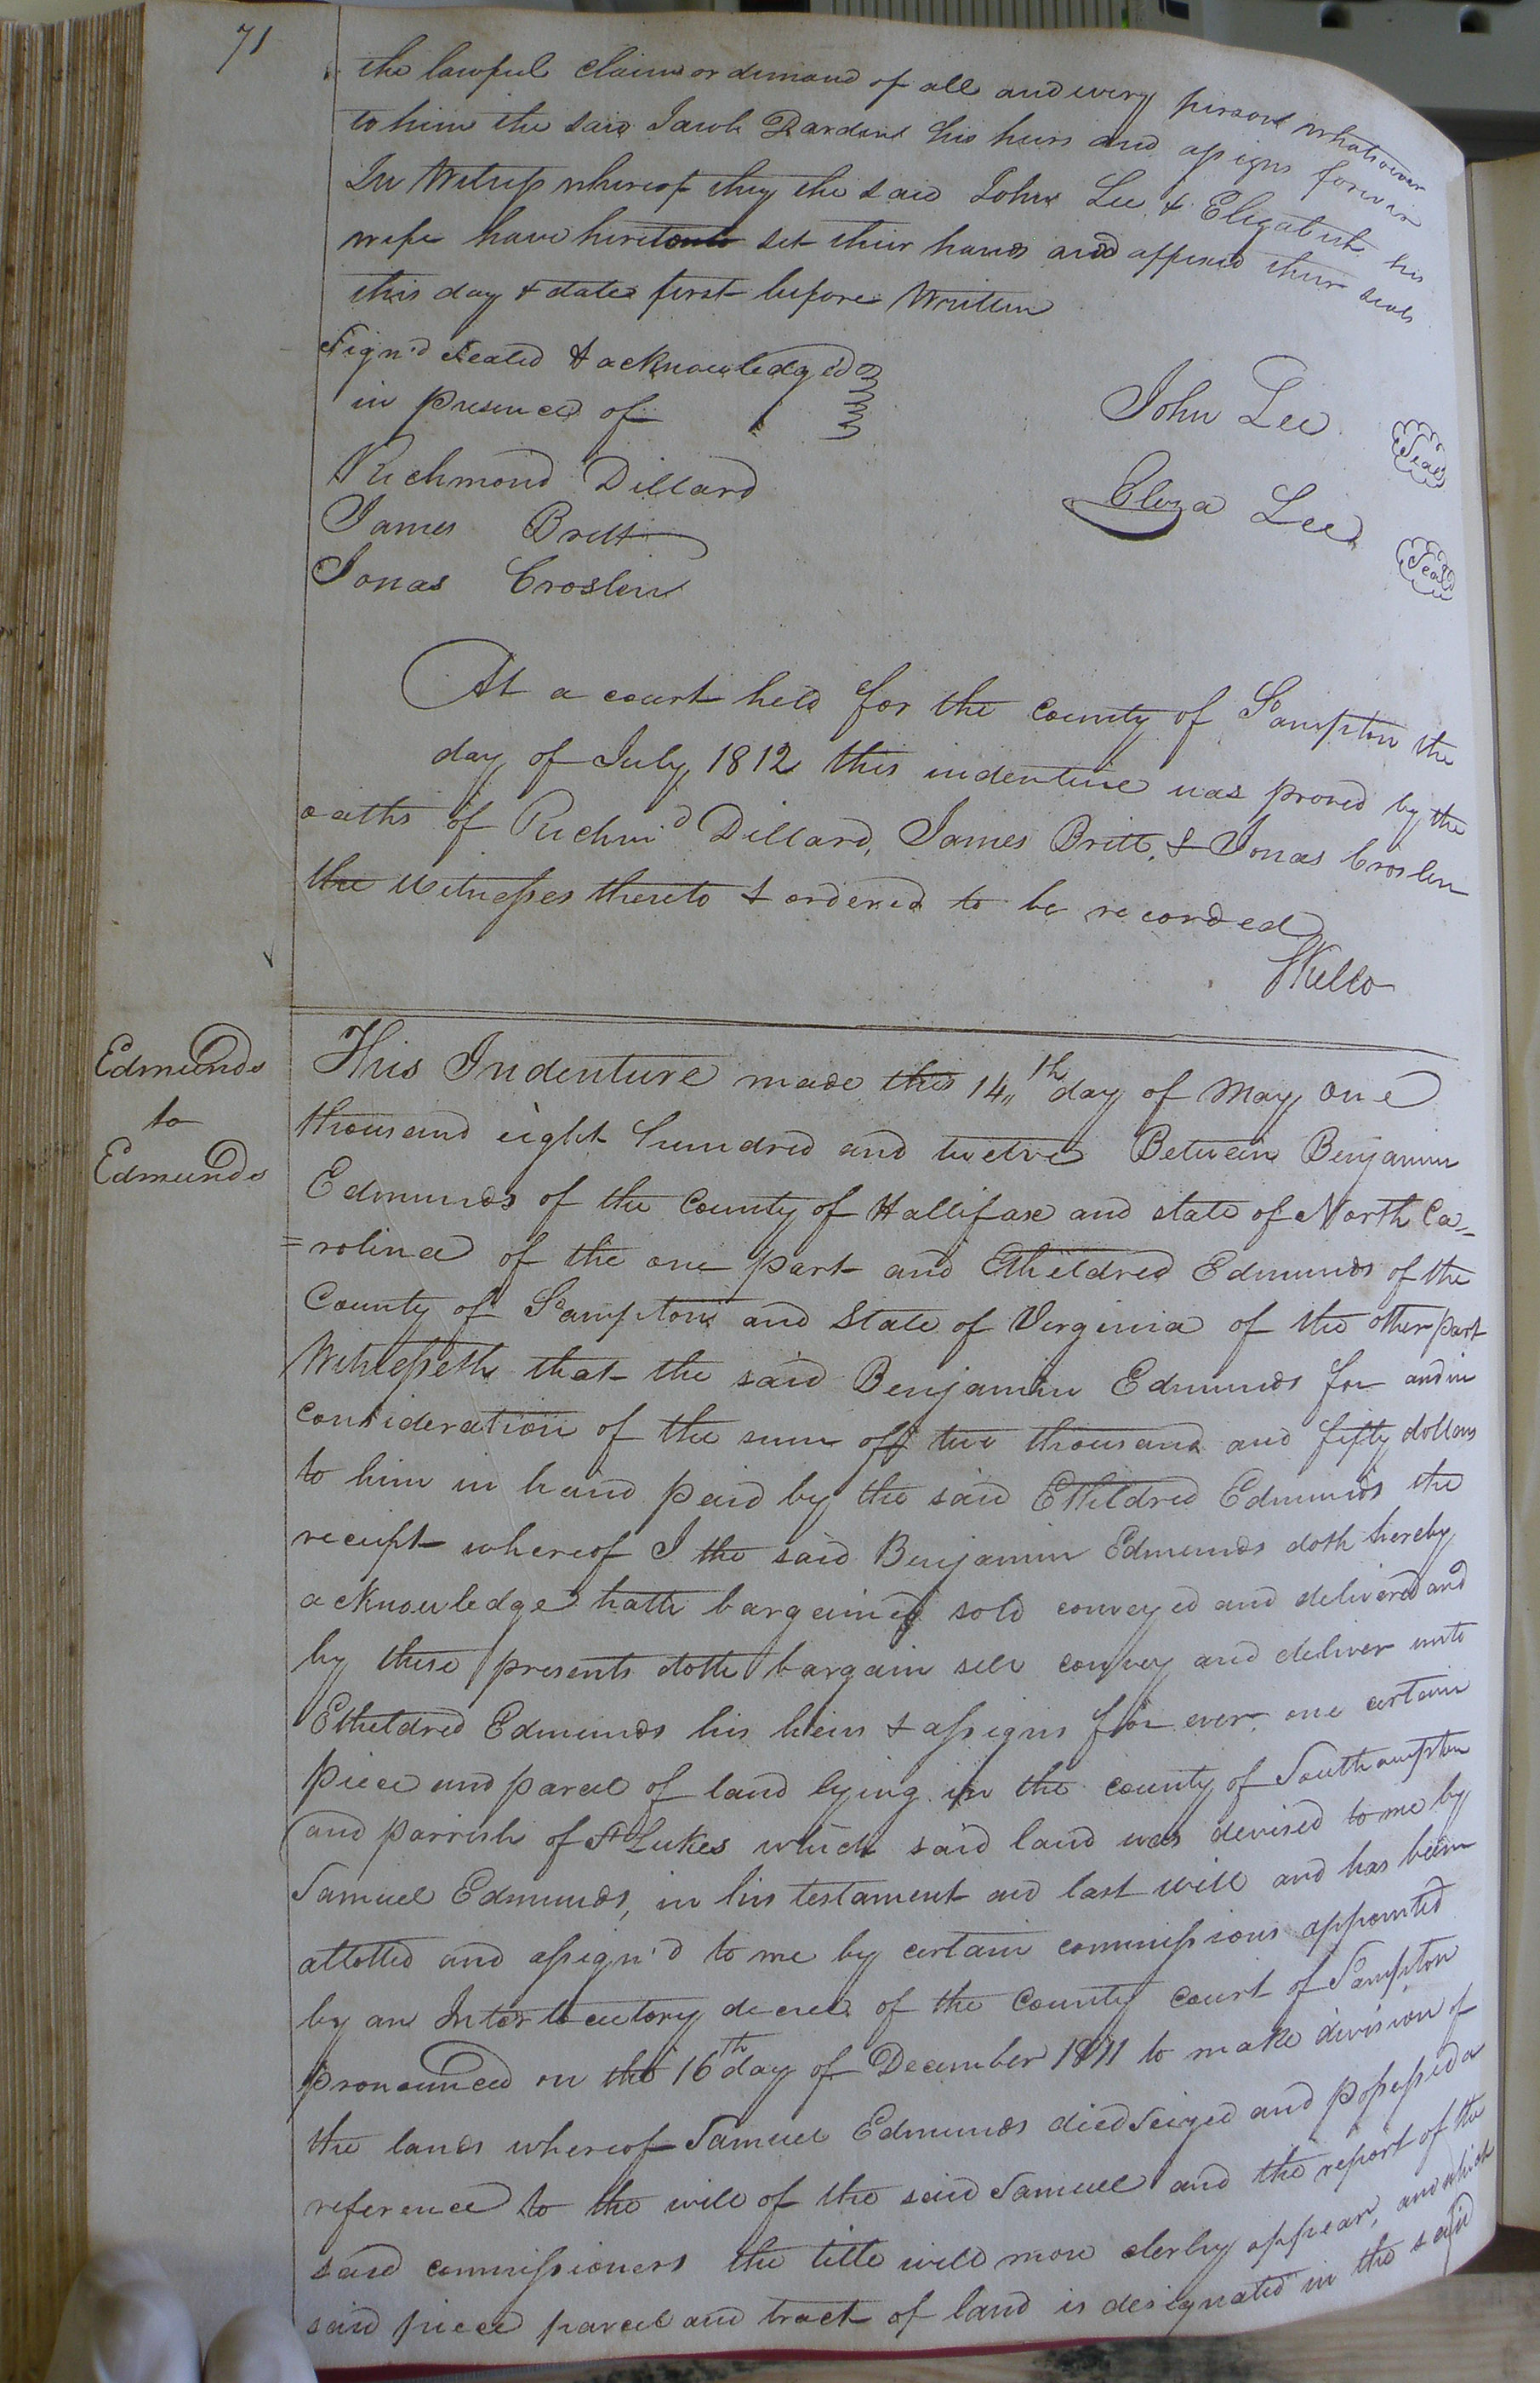 71
the lawful claim or demand of all and every person whatsoever
to him the said Jacob Darden his heirs and assigns forever
In Witness whereof they the said John Lee & Elizabeth his
wife have hereto set their hands and affixed their seals
this day & date first before Written
Sign'd Sealed & acknowledg'd
in presence of
John Lee Seal
Richmond Dillard
Eliza Lee Seal
James Britt
Jonas Croslin
At a court held for the county of S°ampton the
day of July 1812 this indenture was proved by the
oaths of Richmd Dillard, James Britt, & Jonas Croslin
the witnesses thereto & ordered to be recorded
SKello
Edmunds
to
Edmunds
This Indenture made this 14th day of May one
thousand eight hundred and twelve Between Benjamin
Edmunds of the County of Hallifax and state of North Ca-
=rolina of the one part and Etheldred Edmunds of the
County of S°ampton and State of Virginia of the other part
Witnesseth that the said Benjamin Edmunds for and in
consideration of the sum off two thousand and fifty dollars
to him in hand paid by the said Etheldred Edmunds the
receipt whereof I the said Benjamin Edmunds doth hereby
acknowledge hath bargained sold conveyed and delivered and
by these presents doth bargain sell convey and deliver unto
Etheldred Edmunds his heirs & assigns for ever one certain
piece and parcel of land lying in the county of Southampton
and parrish of St Lukes which said land was devised to me by
Samuel Edmunds, in his testament and last will and has been
allotted and assign'd to me by certain commissions appointed
by an Interlocutory decree of the County Court of Sampton
pronounced on the 16th day of December 1811 to make division of
the lands whereof Samuel Edmunds died seized and possessed a
reference to the will of the said Samuel and the report of the
said commissioners the title will more clerly appear, and which
said piece parcel and tract of land is designated in the said